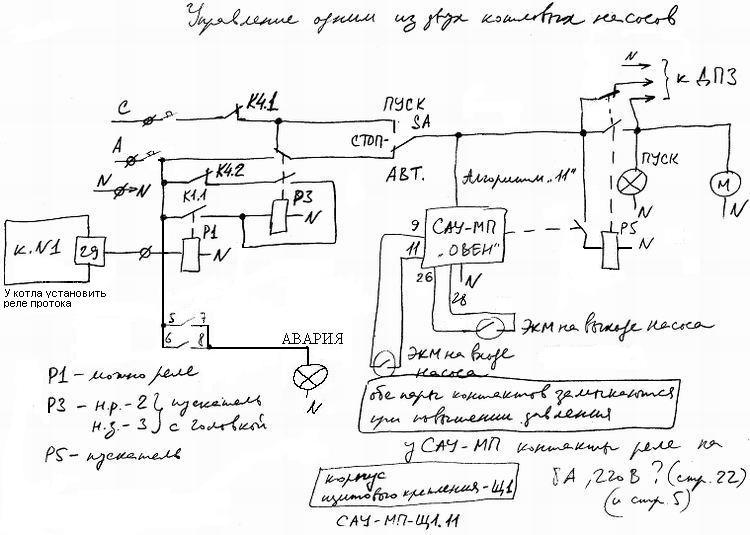 Управление одним из двух котловых насосов
N
к ДПЗ
C
К4.1
ПУСК
SA
A
СТОП
N
N
К4.2
АВТ.
Алгоритм „11"
ПУСК
М
К1.1
Р3
N
N
N
к.N1
29
Р1
N
9
11
САУ-МП
„ОВЕН"
Р5
N
26
28
N
У котла установить
реле протока
5 7
6 8
АВАРИЯ
N
ЭКМ на выходе насоса
ЭКМ на входе
насоса
Р1 - можно реле
Р3 - н.р. - 2 } пускатель
н.з. - 3 } с головкой
Р5 - пускатель
обе пары контактов замыкаются
при повышении давления
у САУ-МП контакты реле на
8А, 220В ? (стр. 22)
(и стр. 5)
корпус
щитового крепления - Щ1
САУ-МП-Щ1.11